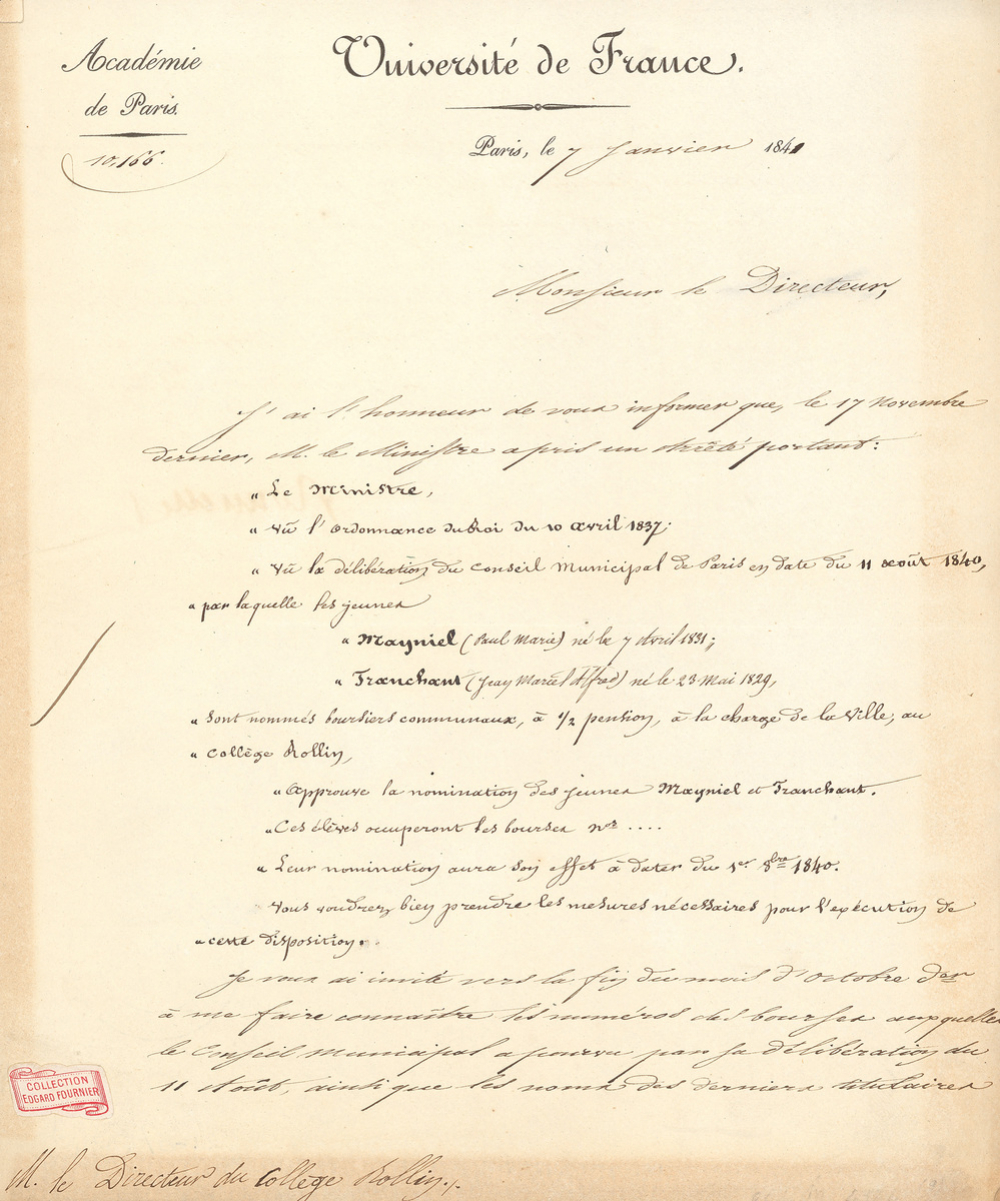 Académie
de Paris.
10,166.
Université de France.
Paris, le 7 Janvier 1841
Monsieur le Directeur,
J'ai l'honneur de vous informer que, le 17 Novembre
dernier, M. le Ministre a pris un arrêté portant:
" Le Ministre,
" Vu l'Ordonnance du Roi du 10 avril 1837;
" Vu la délibération du Conseil Municipal de Paris en date du 11 août 1840,
" par laquelle les jeunes
" Mayniel (Paul Marie) né le 7 Avril 1831;
" Franchant (Jean Marcel Alfred) né le 23 Mai 1829,
" sont nommés boursiers communaux, à 1/2 pension, à la charge de la Ville, au
" Collège Rollin,
" Approuve la nomination des jeunes Mayniel et Franchant.
" Ces élèves occuperont les bourses nos ....
" Leur nomination aura son effet à dater du 1er 8bre 1840.
Vous voudrez bien prendre les mesures nécessaires pour l'exécution de
" cette disposition.
Je vous ai invité vers la fin du mois d'Octobre der
à me faire connaître les numéros des bourses auxquelles
le Conseil Municipal a pourvu par sa délibération du
11 Août, ainsi que les noms des derniers titulaires
COLLECTION
EDGARD FOURNIER
M. le Directeur du Collège Rollin./.